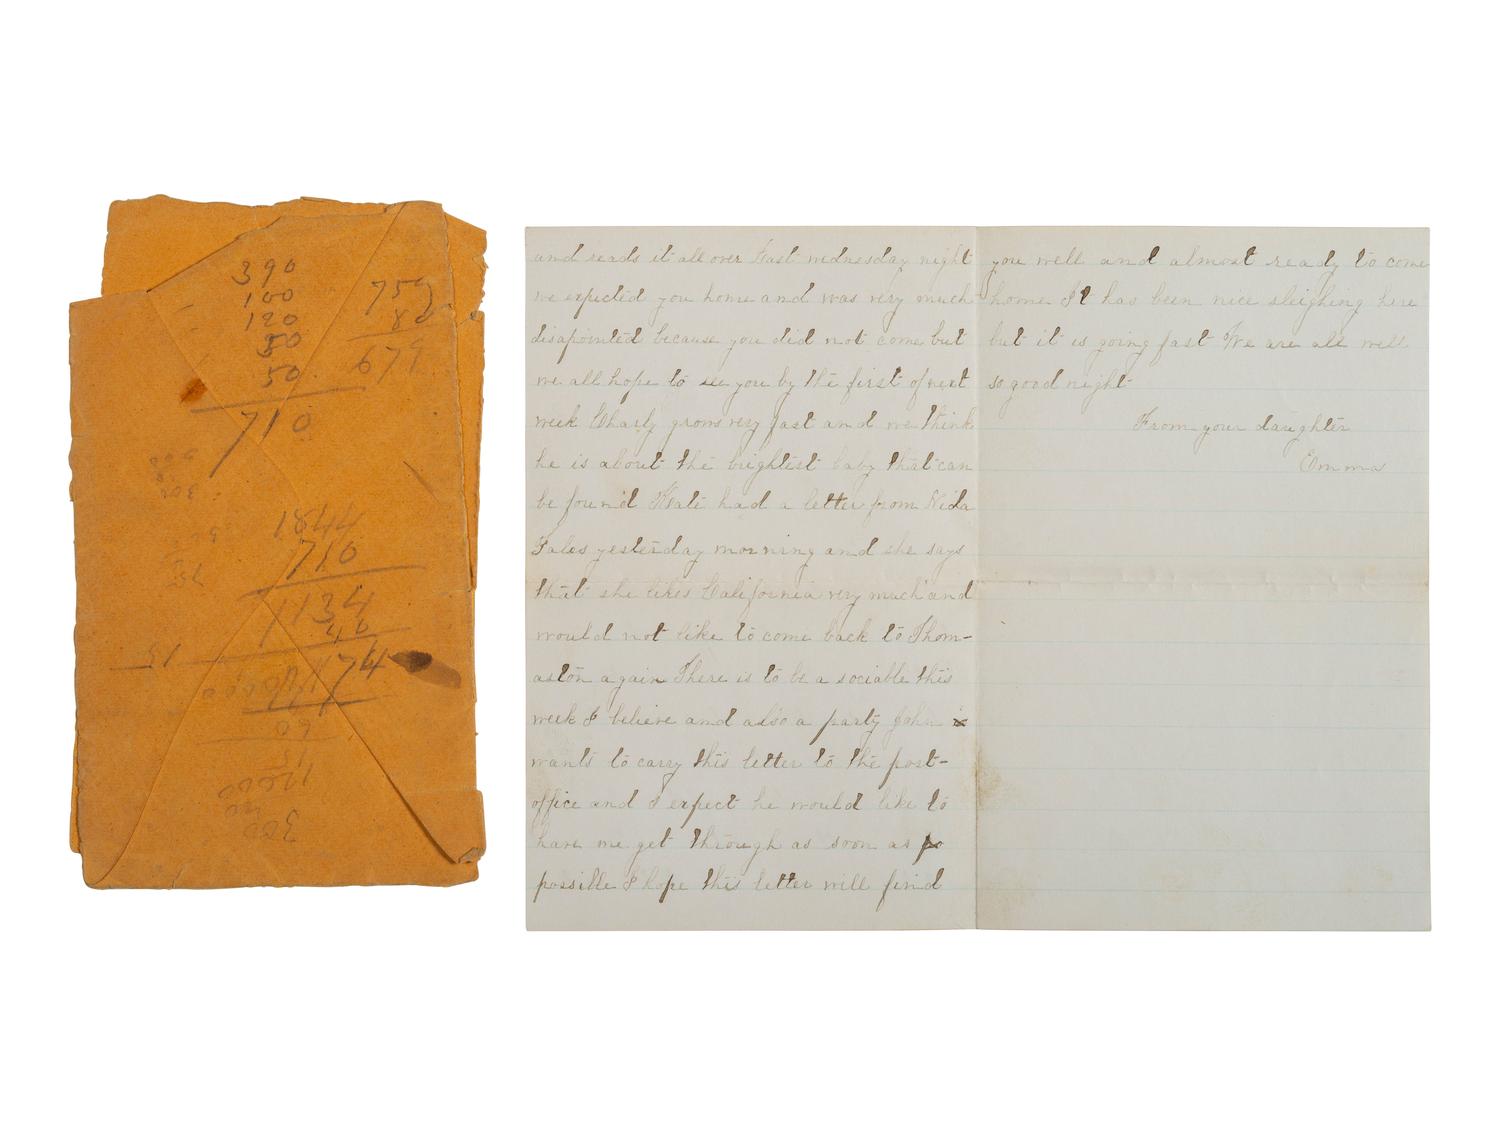 390
100
120
50
50
710
759
80
679
1844
710
1134
40
1174
15
60
15
300
and reads it all over Last wednesday night
we expected you home and was very much
disapointed because you did not come but
we all hope to see you by the first of next
week Charly grows very fast and we think
he is about the brightest baby that can
be found Kate had a letter from Nida
Fales yesterday morning and she says
that she likes California very much and
would not like to come back to Thom-
aston again There is to be a sociable this
week I believe and also a party John
wants to carry this letter to the post-
office and I expect he would like to
have me get through as soon as
possible I hope this letter will find
you well and almost ready to come
home It has been nice sleighing here
but it is going fast We are all well
so good night
From your daughter
Emma